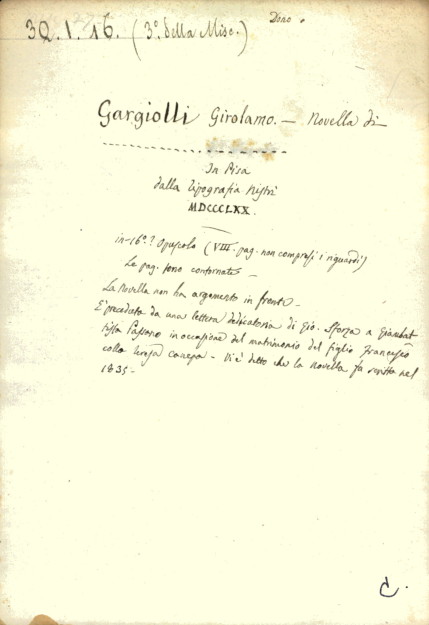 Dono.
3Q.1.16. (3º. della Misc.)
Gargiolli Girolamo. — Novella di
In Pisa
dalla tipografia Nistri
MDCCCLXX.
in-16º.? Opuscolo (VIII. pag. non compresi i riguardi)
Le pag. sono contornate —
La Novella non ha argomento in fronte —
E' preceduta da una lettera dedicatoria di Gio. Sforza a Giambat
tista Passano in occasione del matrimonio del figlio Francesco
colla Canepa — Vi è detto che la Novella fu scritta nel
1835 —
C.